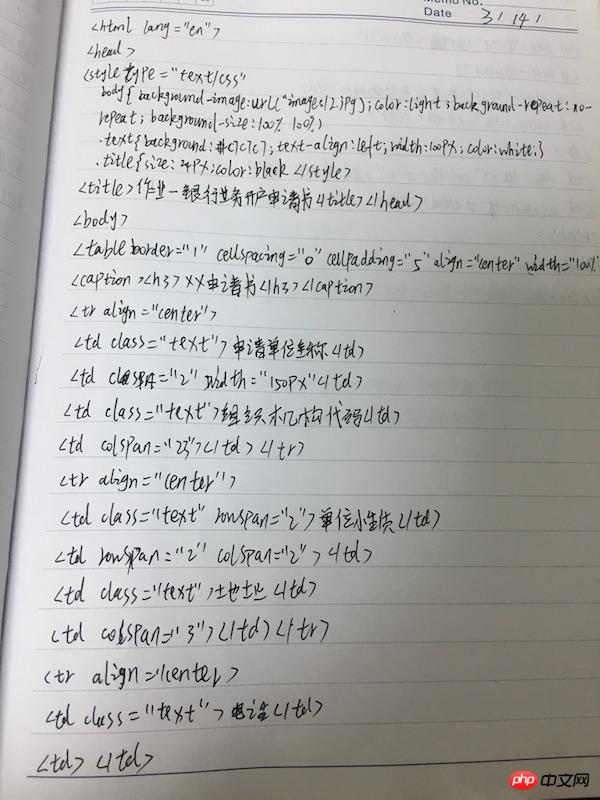 Memo No.
Date 3 / 14 /
<html lang="en">
<head>
<style type="text/css"
body{background-image:url("images/2.jpg);color:light;background-repeat:no-
repeat;background-size:100% 100%)
.text{background:#c7c7c7;text-align:left;width:100px;color:white;}
.title{size:24px;color:black </style>
<title>作业一银行业务开户申请书</title></head>
<body>
<table border="1" cellspacing="0" cellpadding="5" align="center" width="100%"
<caption><h3>XX申请书</h3></caption>
<tr align="center">
<td class="text">申请单位全称</td>
<td ="2" width="150px"</td>
<td class="text">组织机构代码</td>
<td colspan="23"></td></tr>
<tr align="center">
<td class="text" rowspan="2">单位性质</td>
<td rowspan="2" colspan="2"></td>
<td class="text">地址</td>
<td colspan="3"></td></tr>
<tr align="center>
<td class="text">电话</td>
<td></td>
php 中文网